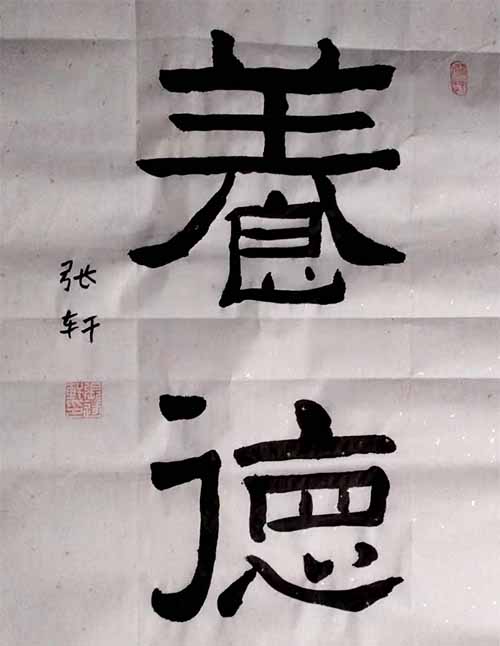 養德
张轩